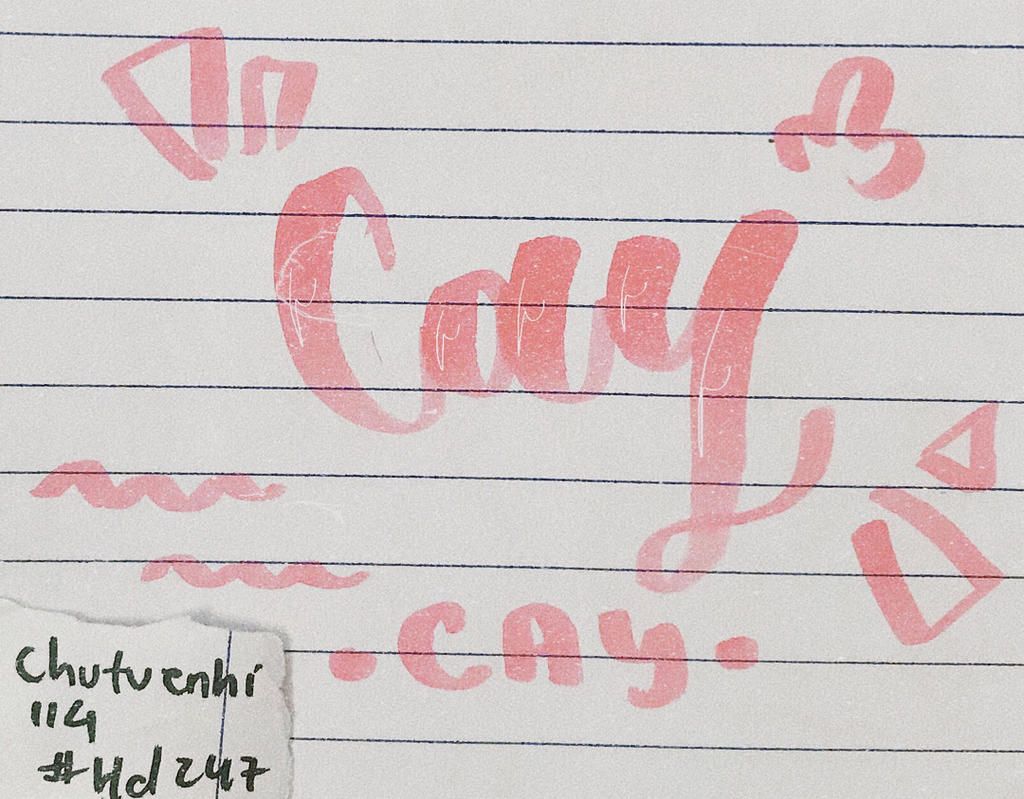 Cay
CAy
Chutuenhi
114
#Hd247